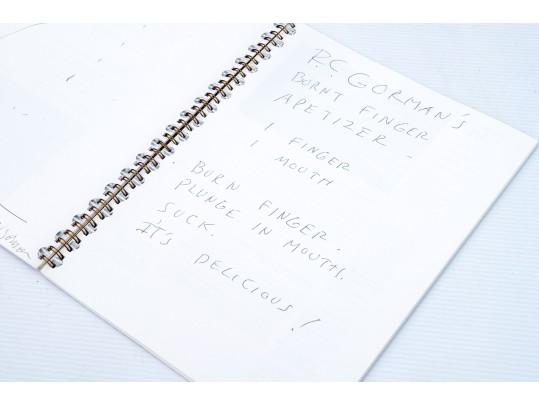 R.C. GORMAN'S
BURNT FINGER
APETIZER -
1 FINGER
1 MOUTH
BURN FINGER.
PLUNGE IN MOUTH.
SUCK.
IT'S DELICIOUS!